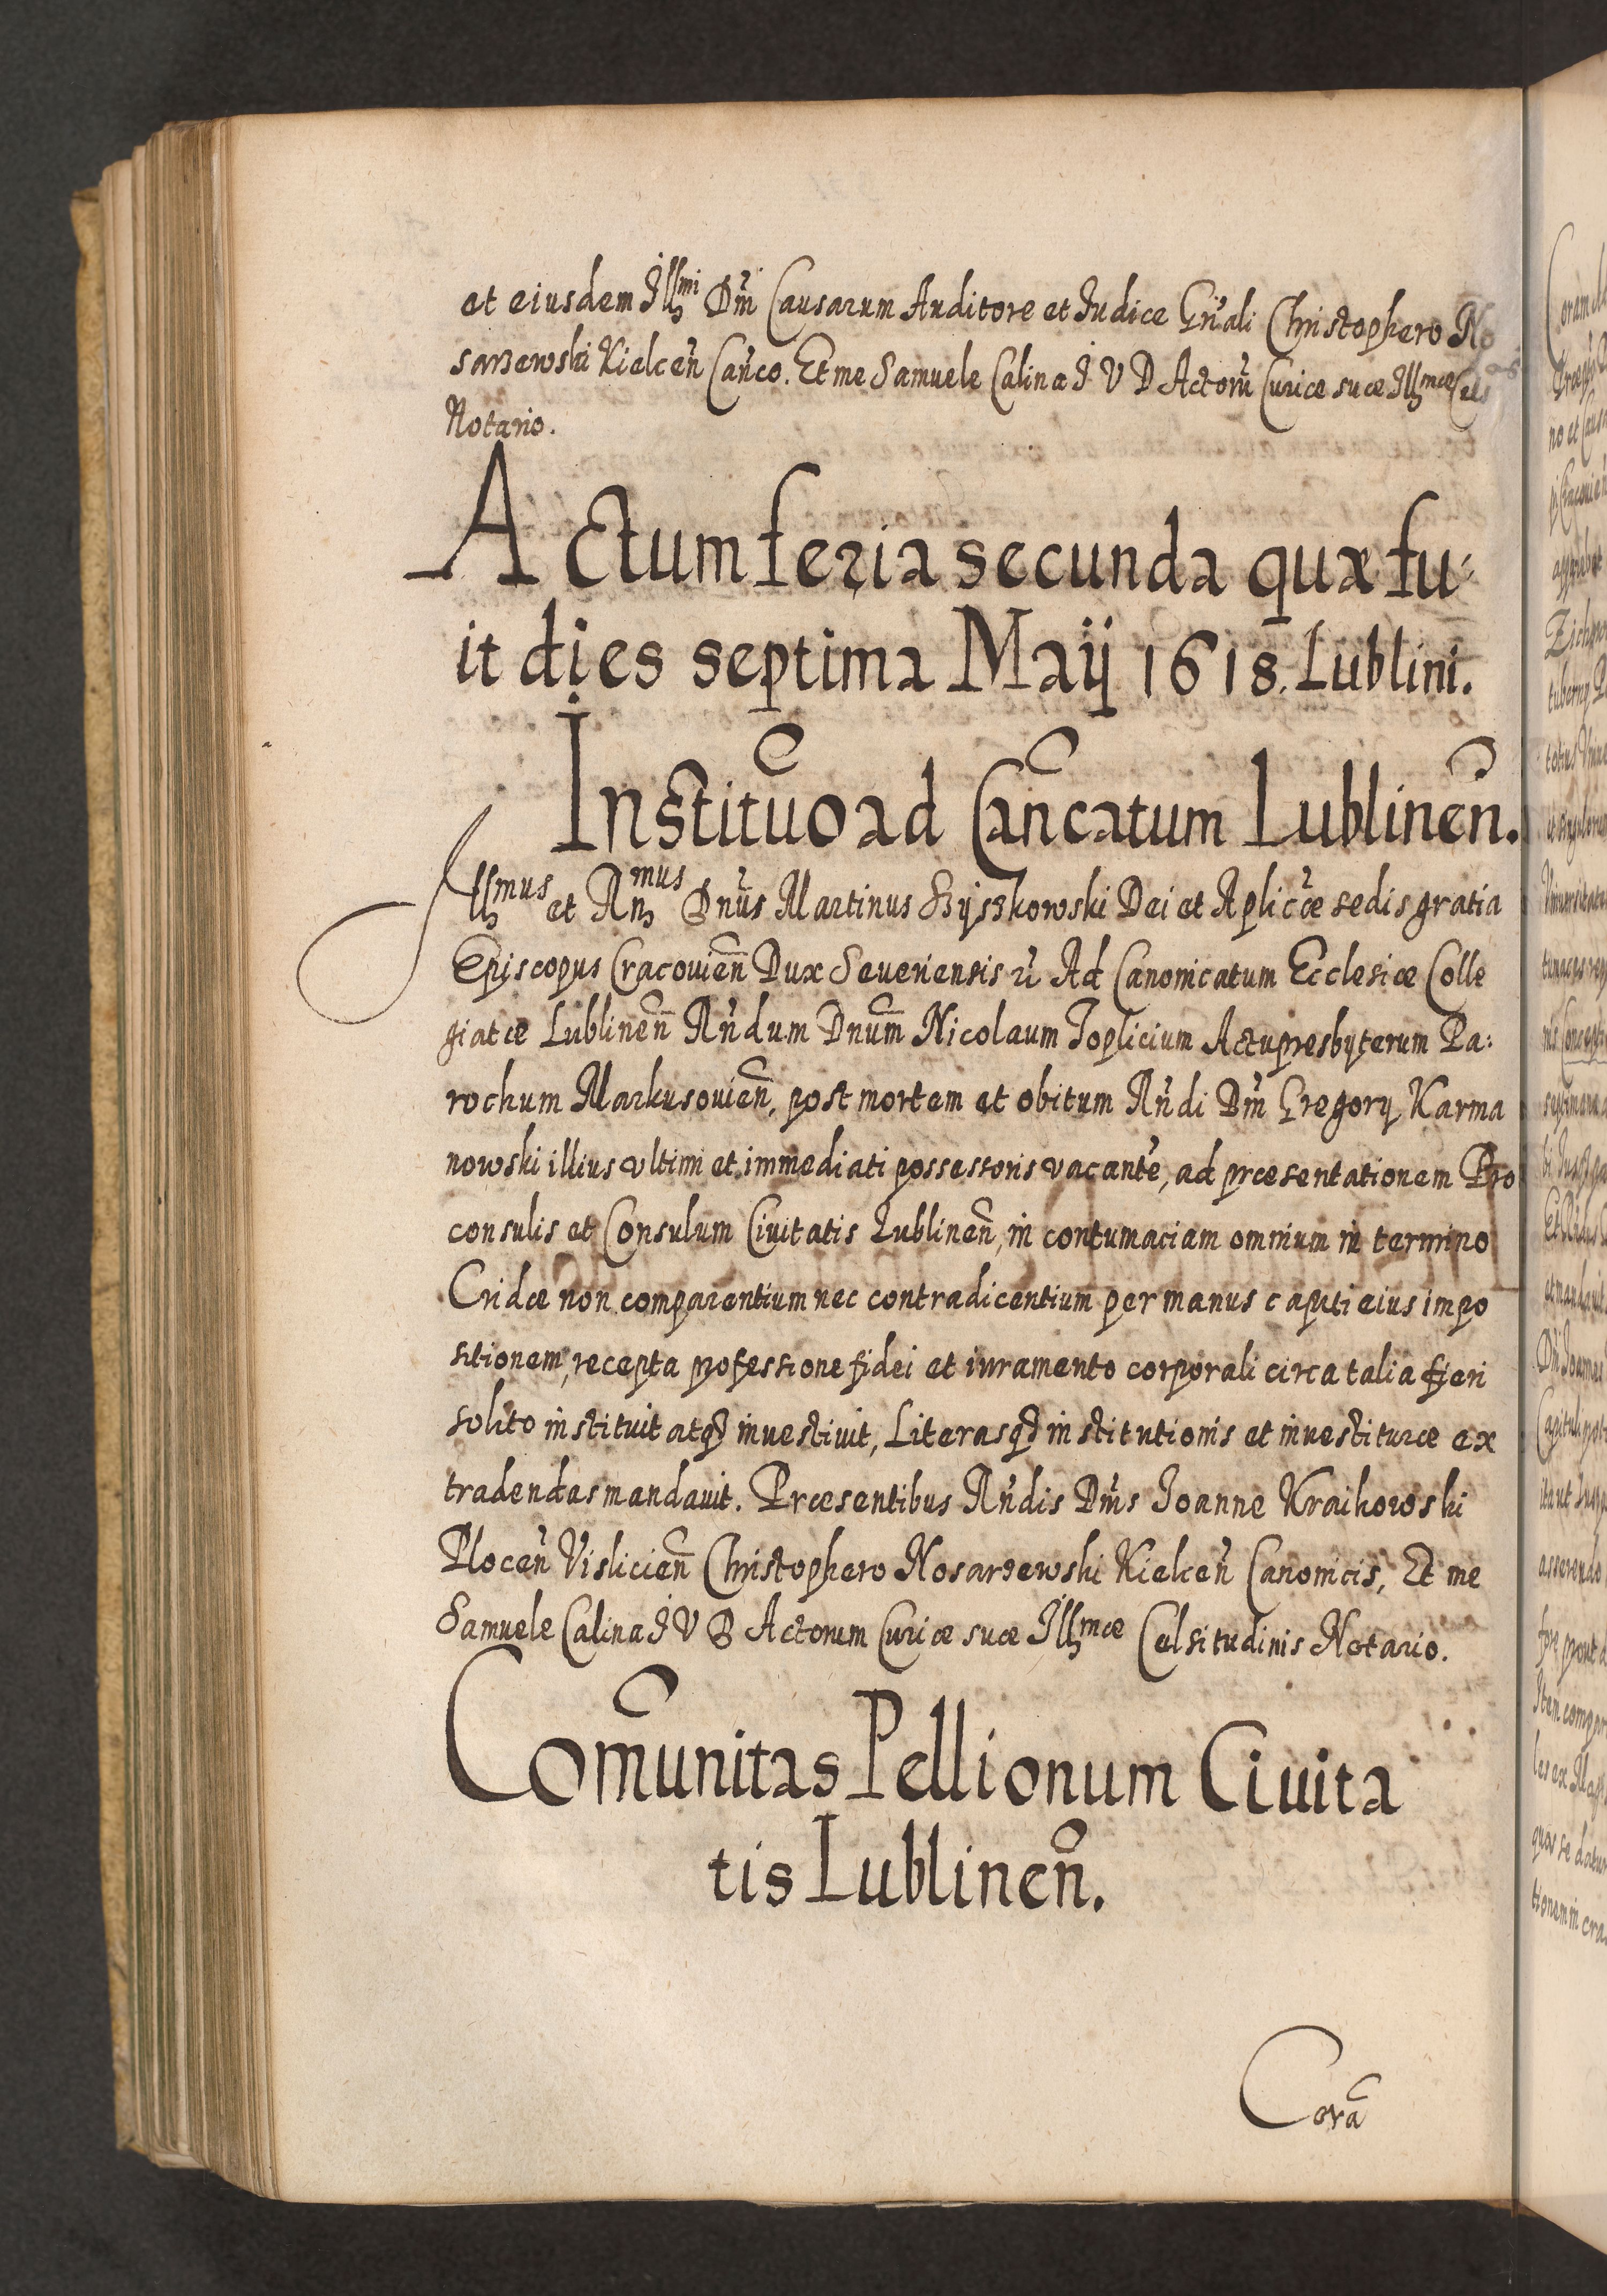 et eiusdem Illmi Dm̃ Causarum Auditore et Iudice Gn̄ali Christophero No
sarzewski Kielceñ Cañco. Et me Samuele Calina I V D Actorũ Curiæ suæ Illmæ Cels
Notario.
Actum feria secunda quæ fu-
it dies septima Maij 1618. Lublini.
Institũo ad Cañcatum Lublineñ.
Illmus et Rn̄mus Dñus Martinus Szyszkowski Dei et Aplicæ sedis gratia
Episcopus Cracovieñ Dux Severiensis Ad Canonicatum Ecclesiæ Colle
giatæ Lublineñ Rñdum Dnũm Nicolaum Toplicium Actu presbyterum Pa:
rochum Markusovieñ, post mortem et obitum Rñdi Dm̃ Gregorij Karma
nowski illius ultimi et immediati possessoris vacantẽ, ad præsentationem Pro
consulis et Consulum Civitatis Lublineñ, in contumaciam omnium in termino
Cridæ non comparentium nec contradicentium per manus capiti eius impo
sitionem, recepta professione fidei et iuramento corporali circa talia fieri
solito instituit atq3 investivit, Literasq3 institutionis et investituræ ex
tradendas mandavit. Præsentibus Rñdis Dm̃s Joanne Kraikowski
Ploceñ Vislicieñ Christophero Nosarzewski Kielceñ Canonicis, Et me
Samuele Calina I V D Actorum Curiæ suæ Illmæ Celsitudinis Notario.
Com̃unitas Pellionum Civita
tis Lublineñ.
Corã